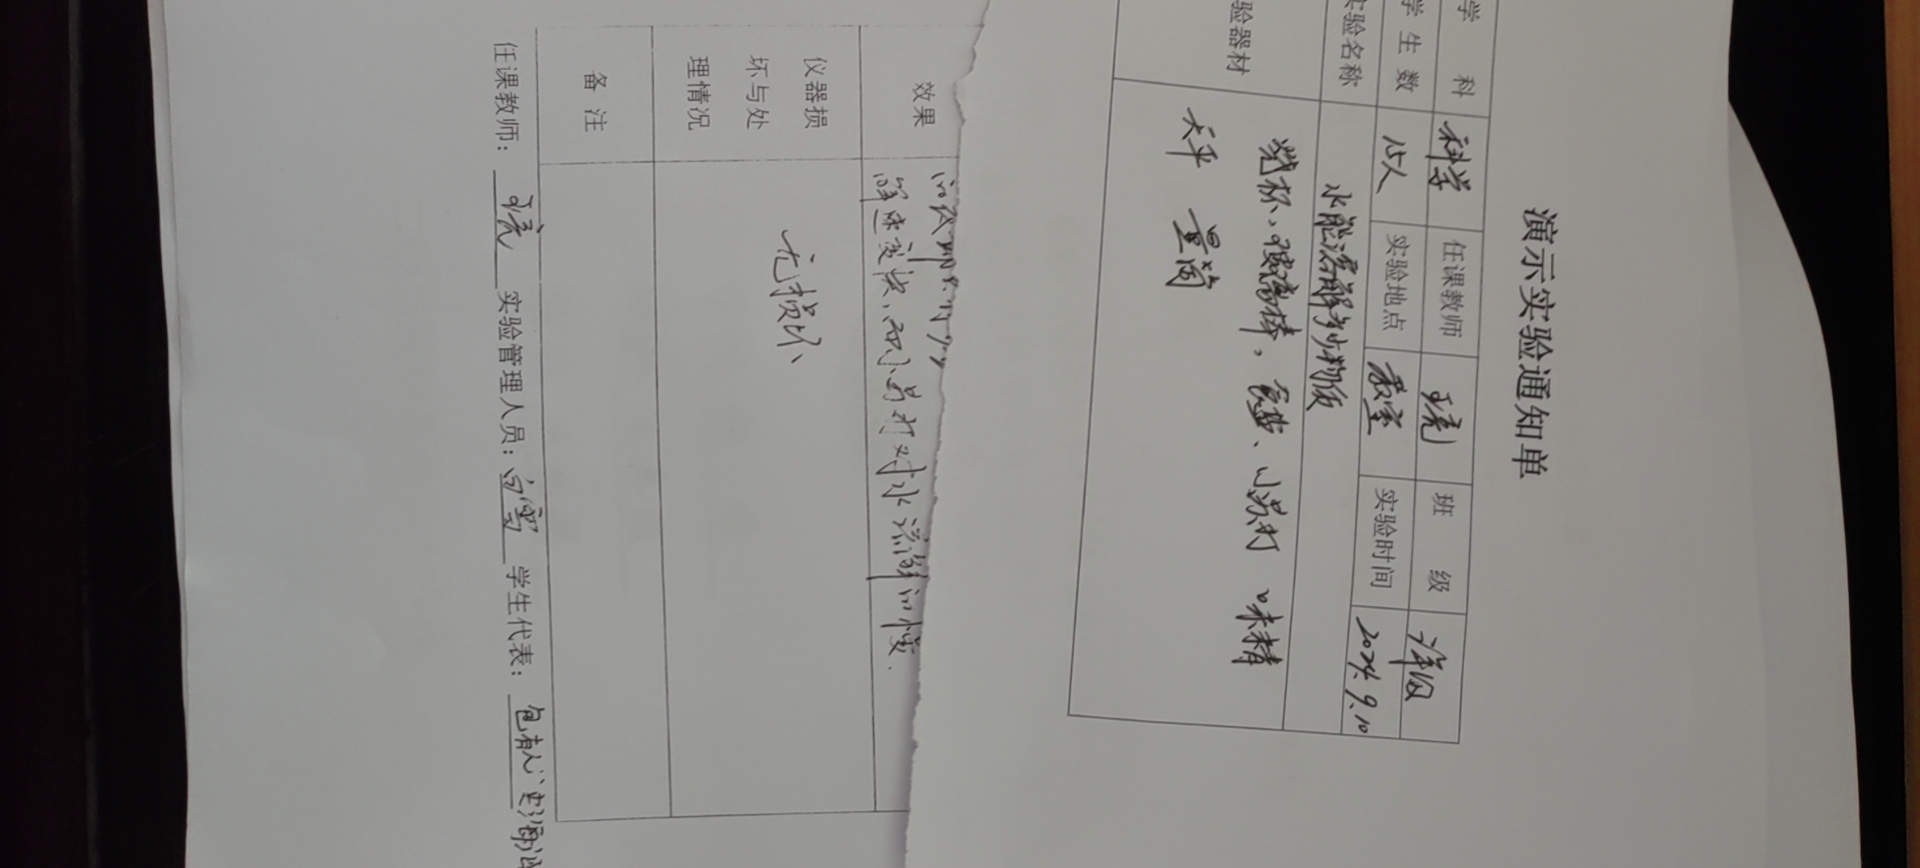 演示实验通知单
学 科 科学 任课教师 班 级
学生数 15人 实验地点 教室 实验时间 2024.9.10
实验名称 水能溶解多少物质
验器材 烧杯、玻璃棒、食盐、小苏打 味精
天平 量筒
效果
解速度快、而小苏打对水溶解的慢.
仪器损坏与处理情况 无损坏
备 注
任课教师: 实验管理人员: 白雪 学生代表: